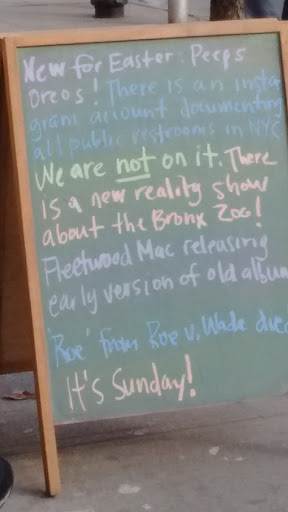 New for Easter: Peeps
Oreos! There is an insta
gram account documenting
all public restrooms in NYC
We are not on it. There
is a new reality show
about the Bronx Zoo!
Fleetwood Mac releasing
early version of old album
"Roe" from Roe v. Wade died
It's Sunday!